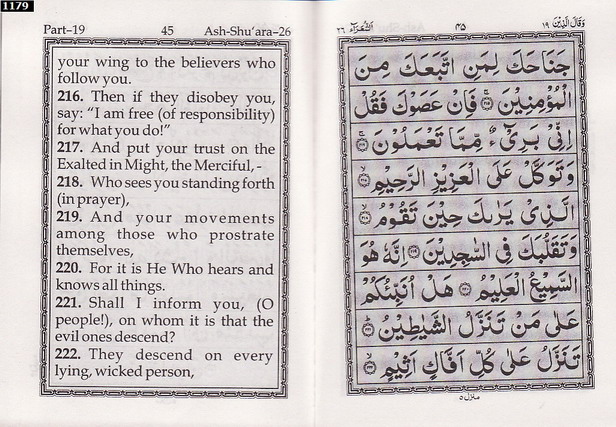 1179
Part-19 45 Ash-Shu'ara-26
your wing to the believers who
follow you.
216. Then if they disobey you,
say: "I am free (of responsibility)
for what you do!"
217. And put your trust on the
Exalted in Might, the Merciful, -
218. Who sees you standing forth
(in prayer),
219. And your movements
among those who prostrate
themselves,
220. For it is He Who hears and
knows all things.
221. Shall I inform you, (O
people!), on whom it is that the
evil ones descend?
222. They descend on every
lying, wicked person,
وَقَالَ الَّذِيْنَ ١٩ ٤٥ الشُّعَرَآء ٢٦
جَنَاحَكَ لِمَنِ اتَّبَعَكَ مِنَ
الْمُؤْمِنِيْنَ ﴿٢١٥﴾ فَاِنْ عَصَوْكَ فَقُلْ
اِنِّىْ بَرِىْٓءٌ مِّمَّا تَعْمَلُوْنَ ﴿٢١٦﴾
وَتَوَكَّلْ عَلَى الْعَزِيْزِ الرَّحِيْمِ ﴿٢١٧﴾
الَّذِىْ يَرٰىكَ حِيْنَ تَقُوْمُ ﴿٢١٨﴾
وَتَقَلُّبَكَ فِى السّٰجِدِيْنَ ﴿٢١٩﴾ اِنَّهٗ هُوَ
السَّمِيْعُ الْعَلِيْمُ ﴿٢٢٠﴾ هَلْ اُنَبِّئُكُمْ
عَلٰى مَنْ تَنَزَّلُ الشَّيٰطِيْنُ ﴿٢٢١﴾
تَنَزَّلُ عَلٰى كُلِّ اَفَّاكٍ اَثِيْمٍ ﴿٢٢٢﴾
منزل ٥